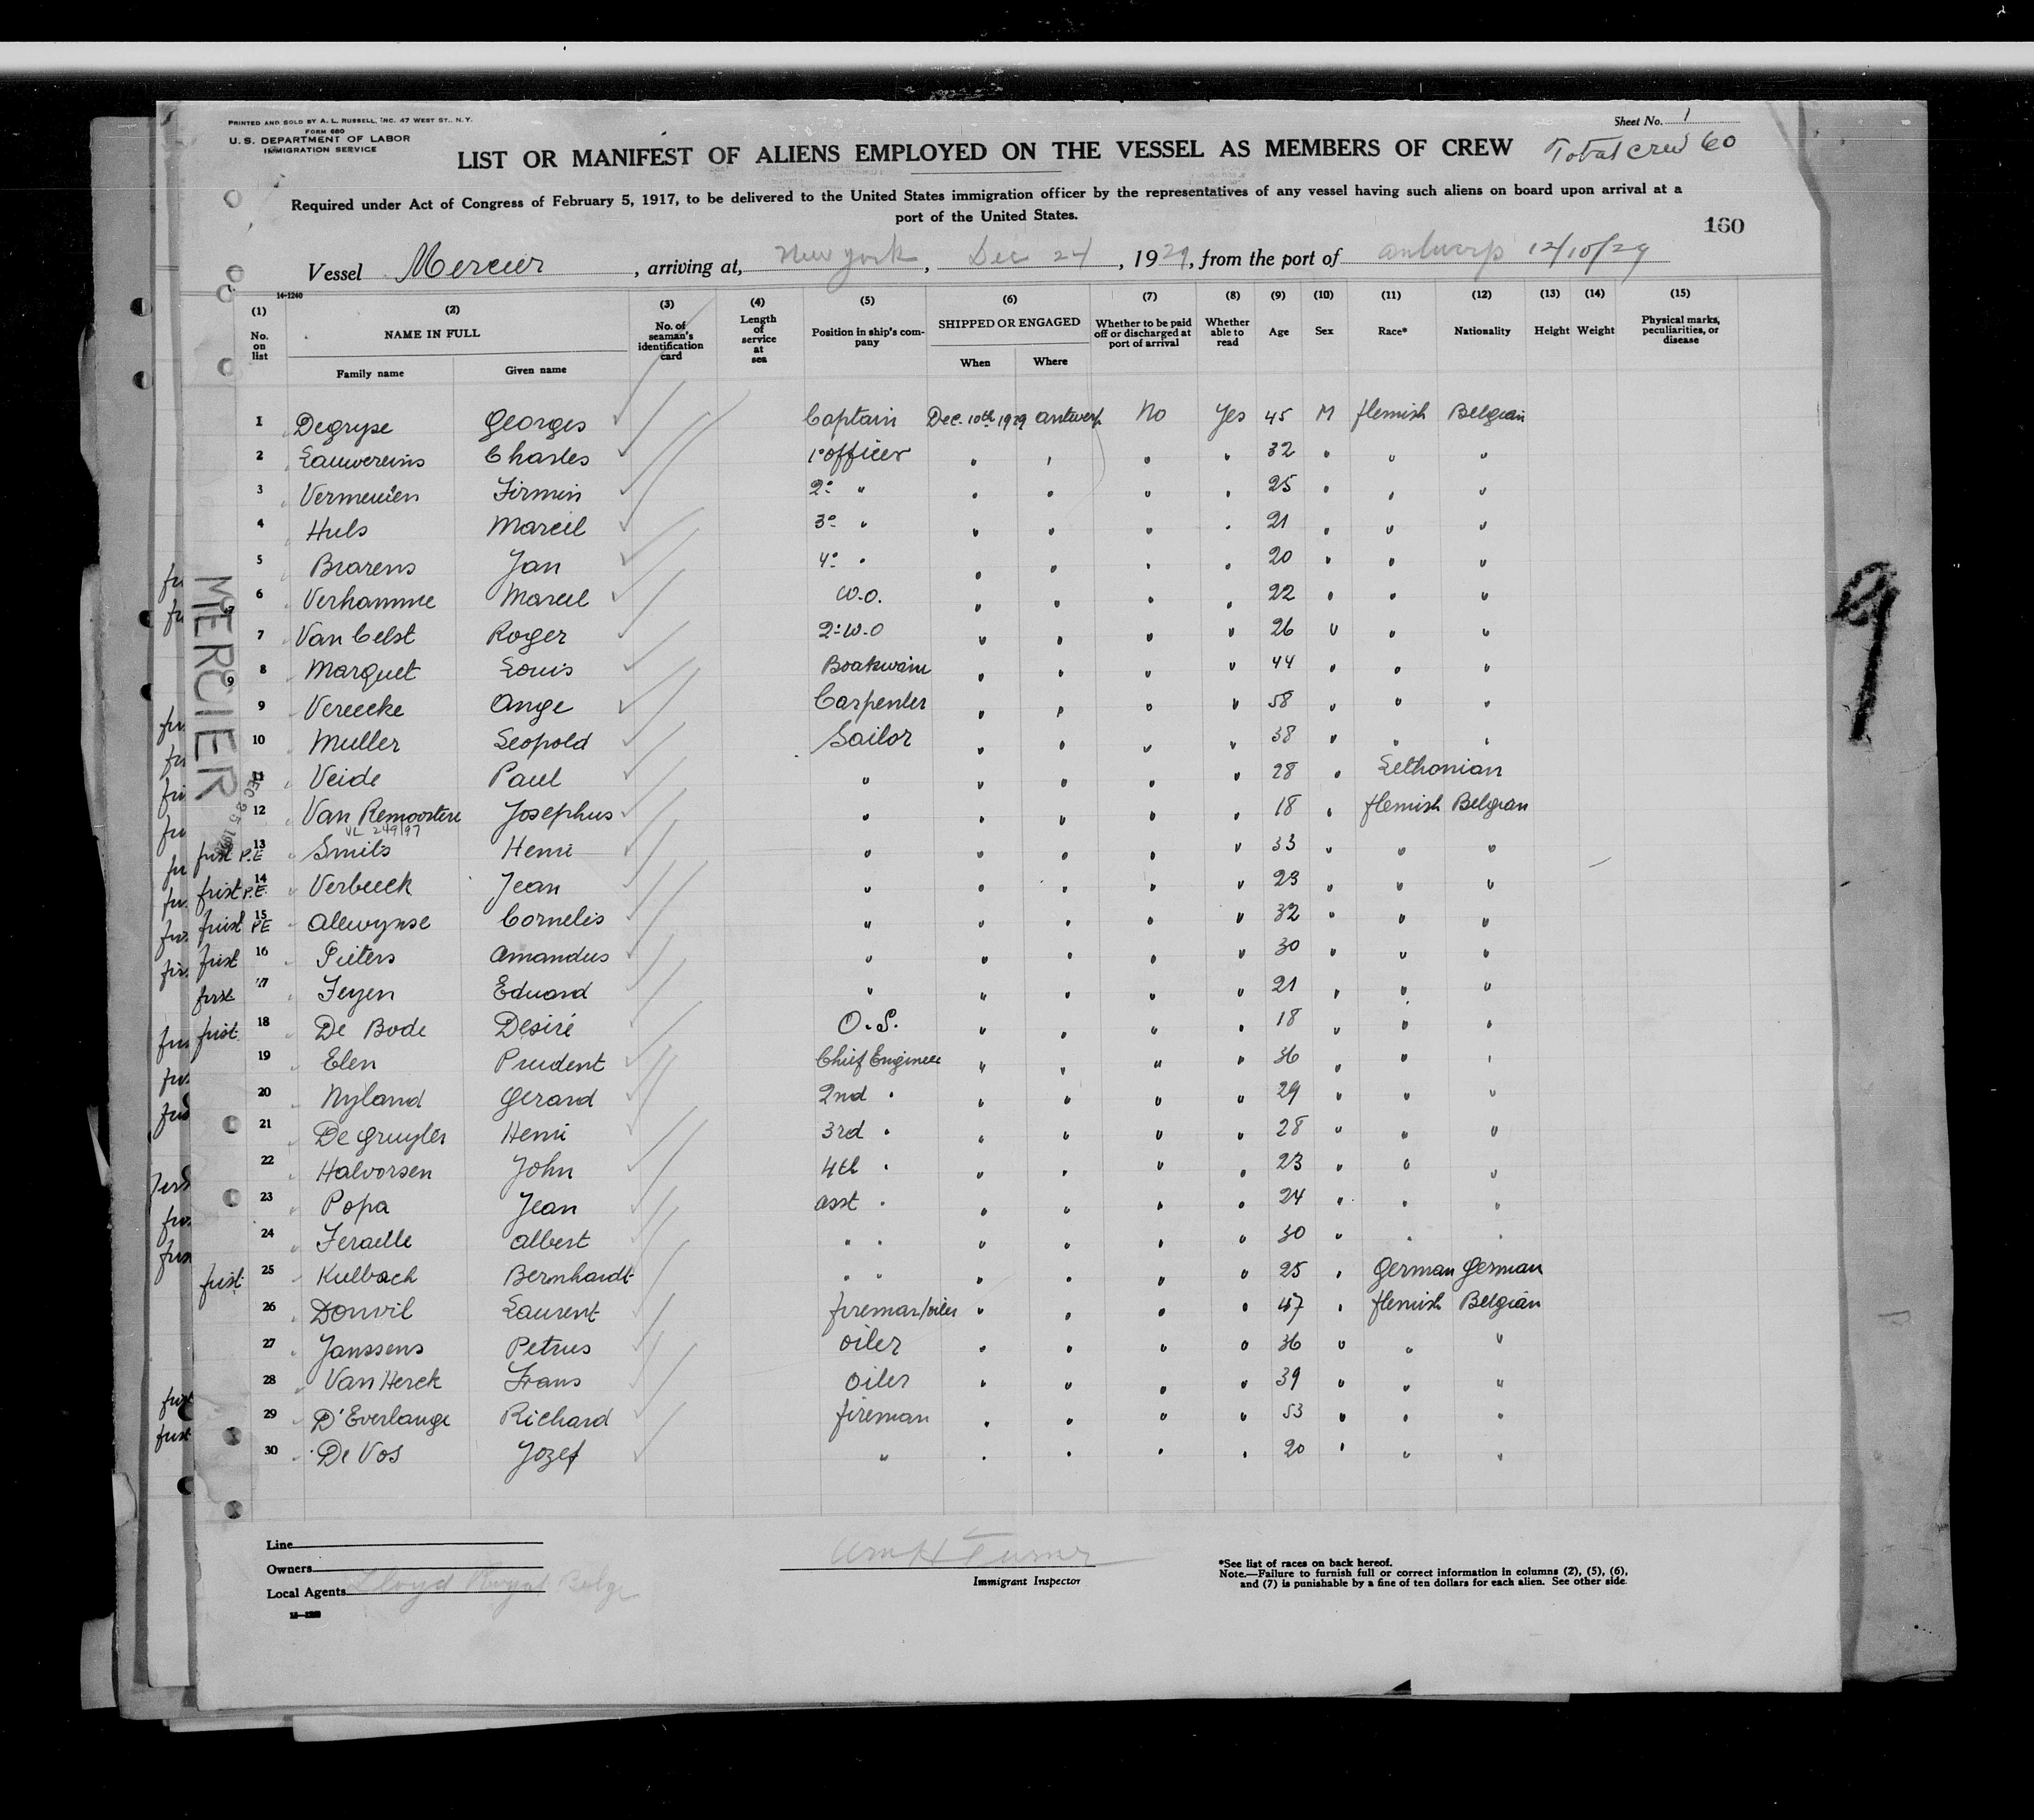 PRINTED AND SOLD BY A. L. RUSSELL, INC. 47 WEST ST., N. Y.
FORM 680
U. S. DEPARTMENT OF LABOR
IMMIGRATION SERVICE
Sheet No. 1
LIST OR MANIFEST OF ALIENS EMPLOYED ON THE VESSEL AS MEMBERS OF CREW Total crew 60
Required under Act of Congress of February 5, 1917, to be delivered to the United States immigration officer by the representatives of any vessel having such aliens on board upon arrival at a
port of the United States.
160
Vessel Mercier, arriving at, New York, Dec 24, 1929, from the port of Antwerp 12/10/29
14-1240
(1) (2) (3) (4) (5) (6) (7) (8) (9) (10) (11) (12) (13) (14) (15)
No. on list NAME IN FULL No. of seaman's identification card Length of service at sea Position in ship's company SHIPPED OR ENGAGED Whether to be paid off or discharged at port of arrival Whether able to read Age Sex Race* Nationality Height Weight Physical marks, peculiarities, or disease
Family name Given name When Where
1 Degryse Georges Captain Dec. 10th 1929 Antwerp No Yes 45 M flemish Belgian
2 Lauwereins Charles 1° officer " " " " 32 " " "
3 Vermeulen Firmin 2° " " " " " 25 " " "
4 Huls Marcel 3° " " " " " 21 " " "
5 Brarens Jan 4° " " " " " 20 " " "
6 Verhamme Marcel W.O. " " " " 22 " " "
7 Van Celst Roger 2° W.O " " " " 26 " " "
8 Marquet Louis Boatswain " " " " 44 " " "
9 Vereecke Ange Carpenter " " " " 58 " " "
10 Muller Leopold Sailor " " " " 38 " " "
11 Veide Paul " " " " " 28 " Lethonian
12 Van Remoortere Josephus " " " " " 18 " flemish Belgian
VL 249/97
first P.E 13 Smits Henri " " " " " 33 " " "
first P.E. 14 Verbeeck Jean " " " " " 23 " " "
first PE 15 Allewynse Cornelis " " " " " 32 " " "
first 16 Pieters Amandus " " " " " 30 " " "
first 17 Feyen Eduard " " " " " 21 " " "
first 18 De Bode Desiré O.S. " " " " 18 " " "
19 Elen Prudent Chief Engineer " " " " 36 " " "
20 Nyland Gerard 2nd " " " " " 29 " " "
21 De Gruyter Henri 3rd " " " " " 28 " " "
22 Halvorsen John 4th " " " " " 23 " " "
23 Popa Jean asst " " " " " 24 " " "
24 Feraille Albert " " " " " " 30 " " "
first 25 Kulbach Bernhardt " " " " " " 25 " German German
26 Donvil Laurent fireman/oiler " " " " 47 " flemish Belgian
27 Janssens Petrus oiler " " " " 36 " " "
28 Van Herck Frans Oiler " " " " 39 " " "
29 D'Everlange Richard fireman " " " " 53 " " "
30 De Vos Jozef " " " " " 20 " " "
MERCIER
Line
Owners
Local Agents Lloyd Royal Belge
Wm H Turner
Immigrant Inspector
*See list of races on back hereof.
Note.—Failure to furnish full or correct information in columns (2), (5), (6),
and (7) is punishable by a fine of ten dollars for each alien. See other side.